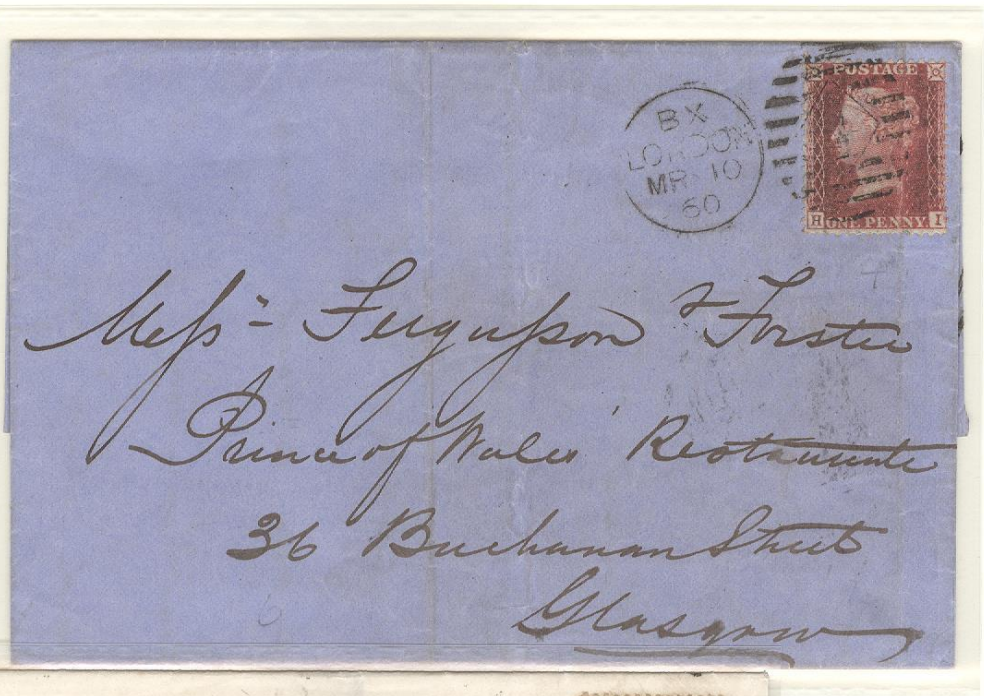 BX
LONDON
MR 10
60
POSTAGE
H ONE PENNY I
Messrs Fergusson & Forster
Prince of Wales' Restaurante
36 Buchanan Street
Glasgow